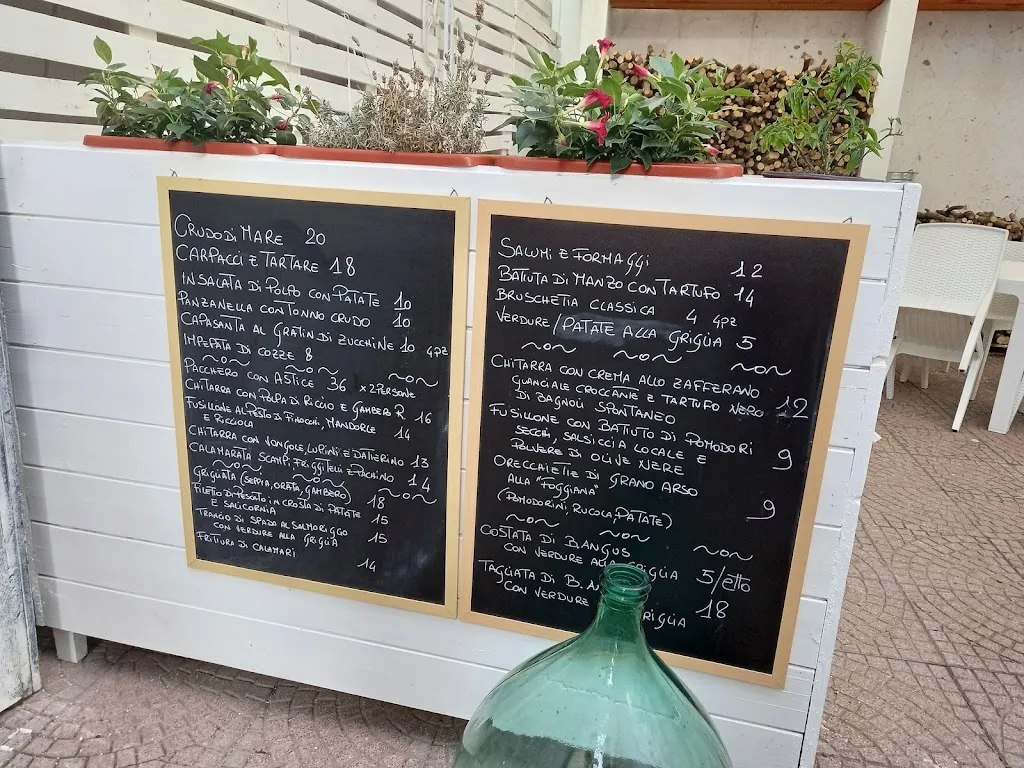 CRUDO DI MARE 20
CARPACCI E TARTARE 18
INSALATA DI POLPO CON PATATE 10
PANZANELLA CON TONNO CRUDO 10
CAPASANTA AL GRATIN DI ZUCCHINE 10 4PZ
IMPEPATA DI COZZE 8
PACCHERO CON ASTICE 36 x 2 PERSONE
CHITARRA CON POLPA DI RICCIO E GAMBERO R 16
FUSILLONE AL PESTO DI FINOCCHI, MANDORLE
E RICCIOLA 14
CHITARRA CON VONGOLE, LUPINI E DATTERINO 13
CALAMARATA SCAMPI, FRIGGITELLI E PACHINO 14
GRIGLIATA (SEPPIA, ORATA, GAMBERO) 18
FILETTO DI PESCATO IN CROSTA DI PATATE
E SALICORNIA 15
TRANCIO DI SPADA AL SALMORIGGO
CON VERDURE ALLA GRIGLIA 15
FRITTURA DI CALAMARI 14
SALUMI E FORMAGGI 12
BATTUTA DI MANZO CON TARTUFO 14
BRUSCHETTA CLASSICA 4 4PZ
VERDURE/PATATE ALLA GRIGLIA 5
CHITARRA CON CREMA ALLO ZAFFERANO
GUANCIALE CROCCANTE E TARTUFO NERO 12
DI BAGNOLI SPONTANEO
FUSILLONE CON BATTUTO DI POMODORI
SECCHI, SALSICCIA LOCALE E 9
POLVERE DI OLIVE NERE
ORECCHIETTE DI GRANO ARSO
ALLA "FOGGIANA" 9
(POMODORINI, RUCOLA, PATATE)
COSTATA DI B ANGUS
CON VERDURE ALLA GRIGLIA 5/etto
TAGLIATA DI B.
CON VERDURE GRIGLIA 18